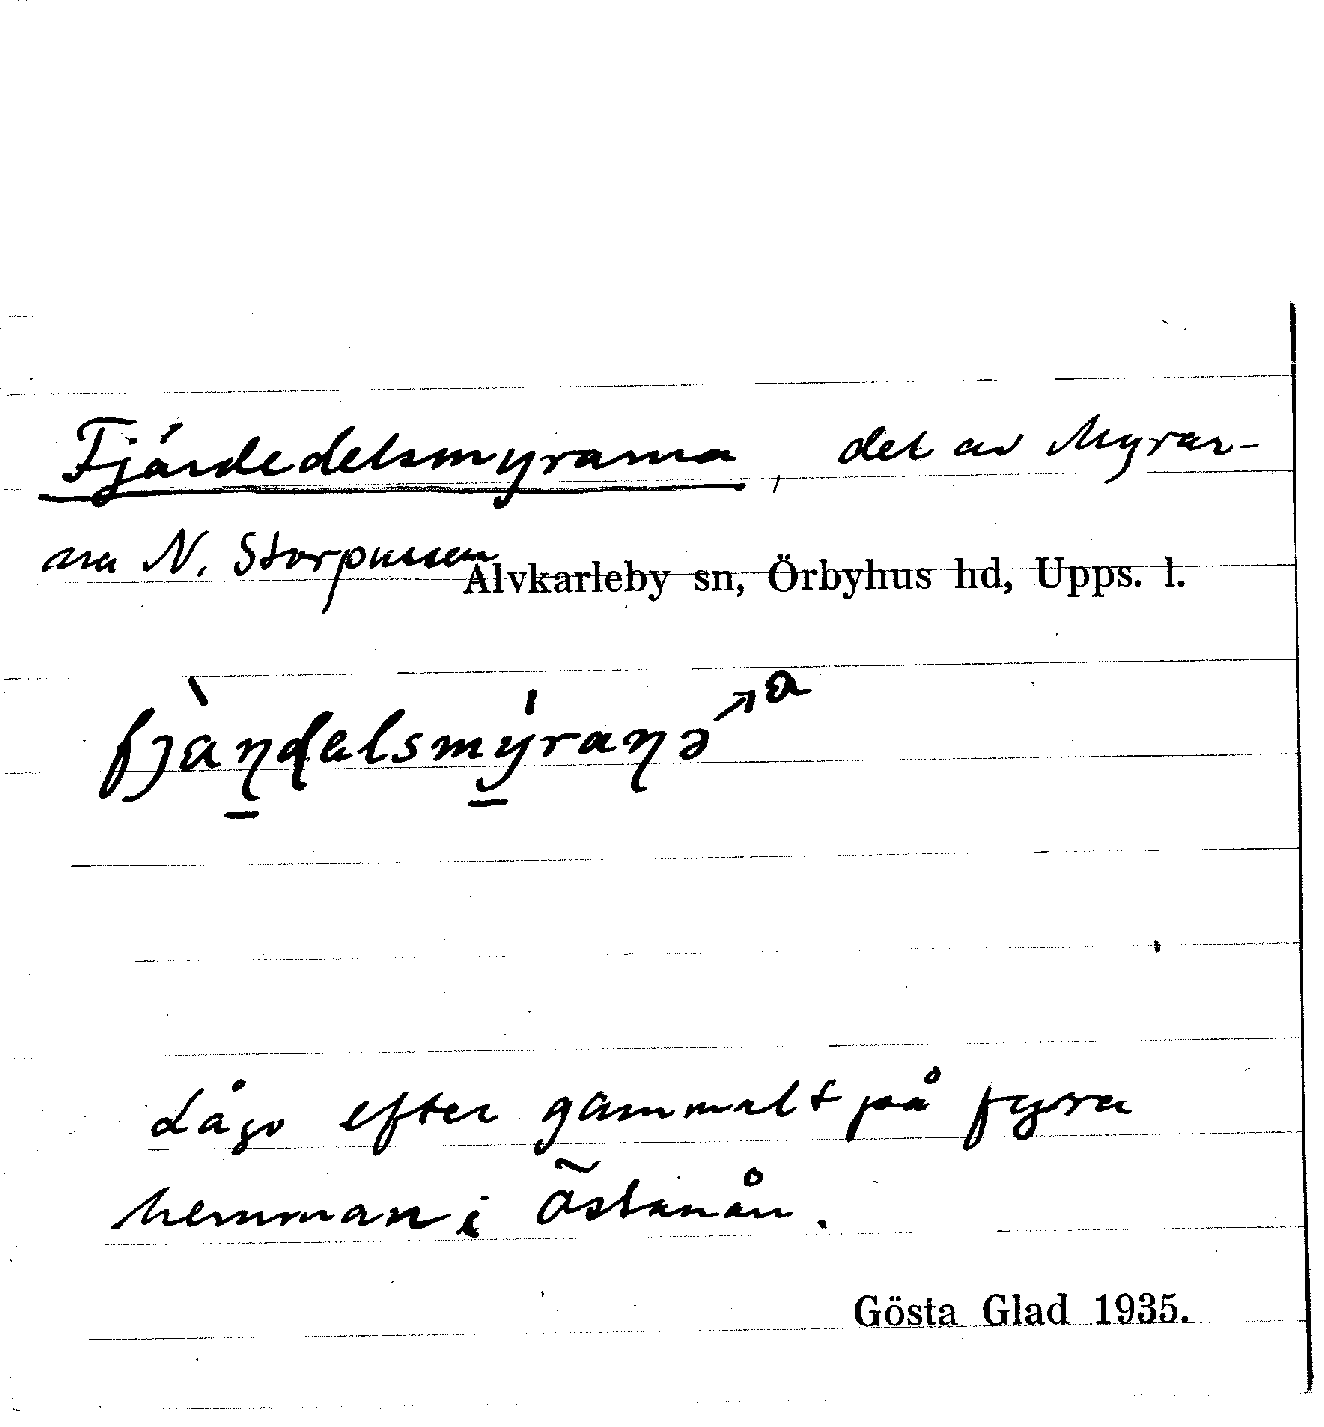 Fjärdedelsmyrarna, del av Myrar-
na N. Storpussen
Älvkarleby sn, Örbyhus hd, Upps. l.
a
fjàṇḍelsmýraṇə
Lågo efter gammalt på fyra
hemman i Östanån.
Gösta Glad 1935.